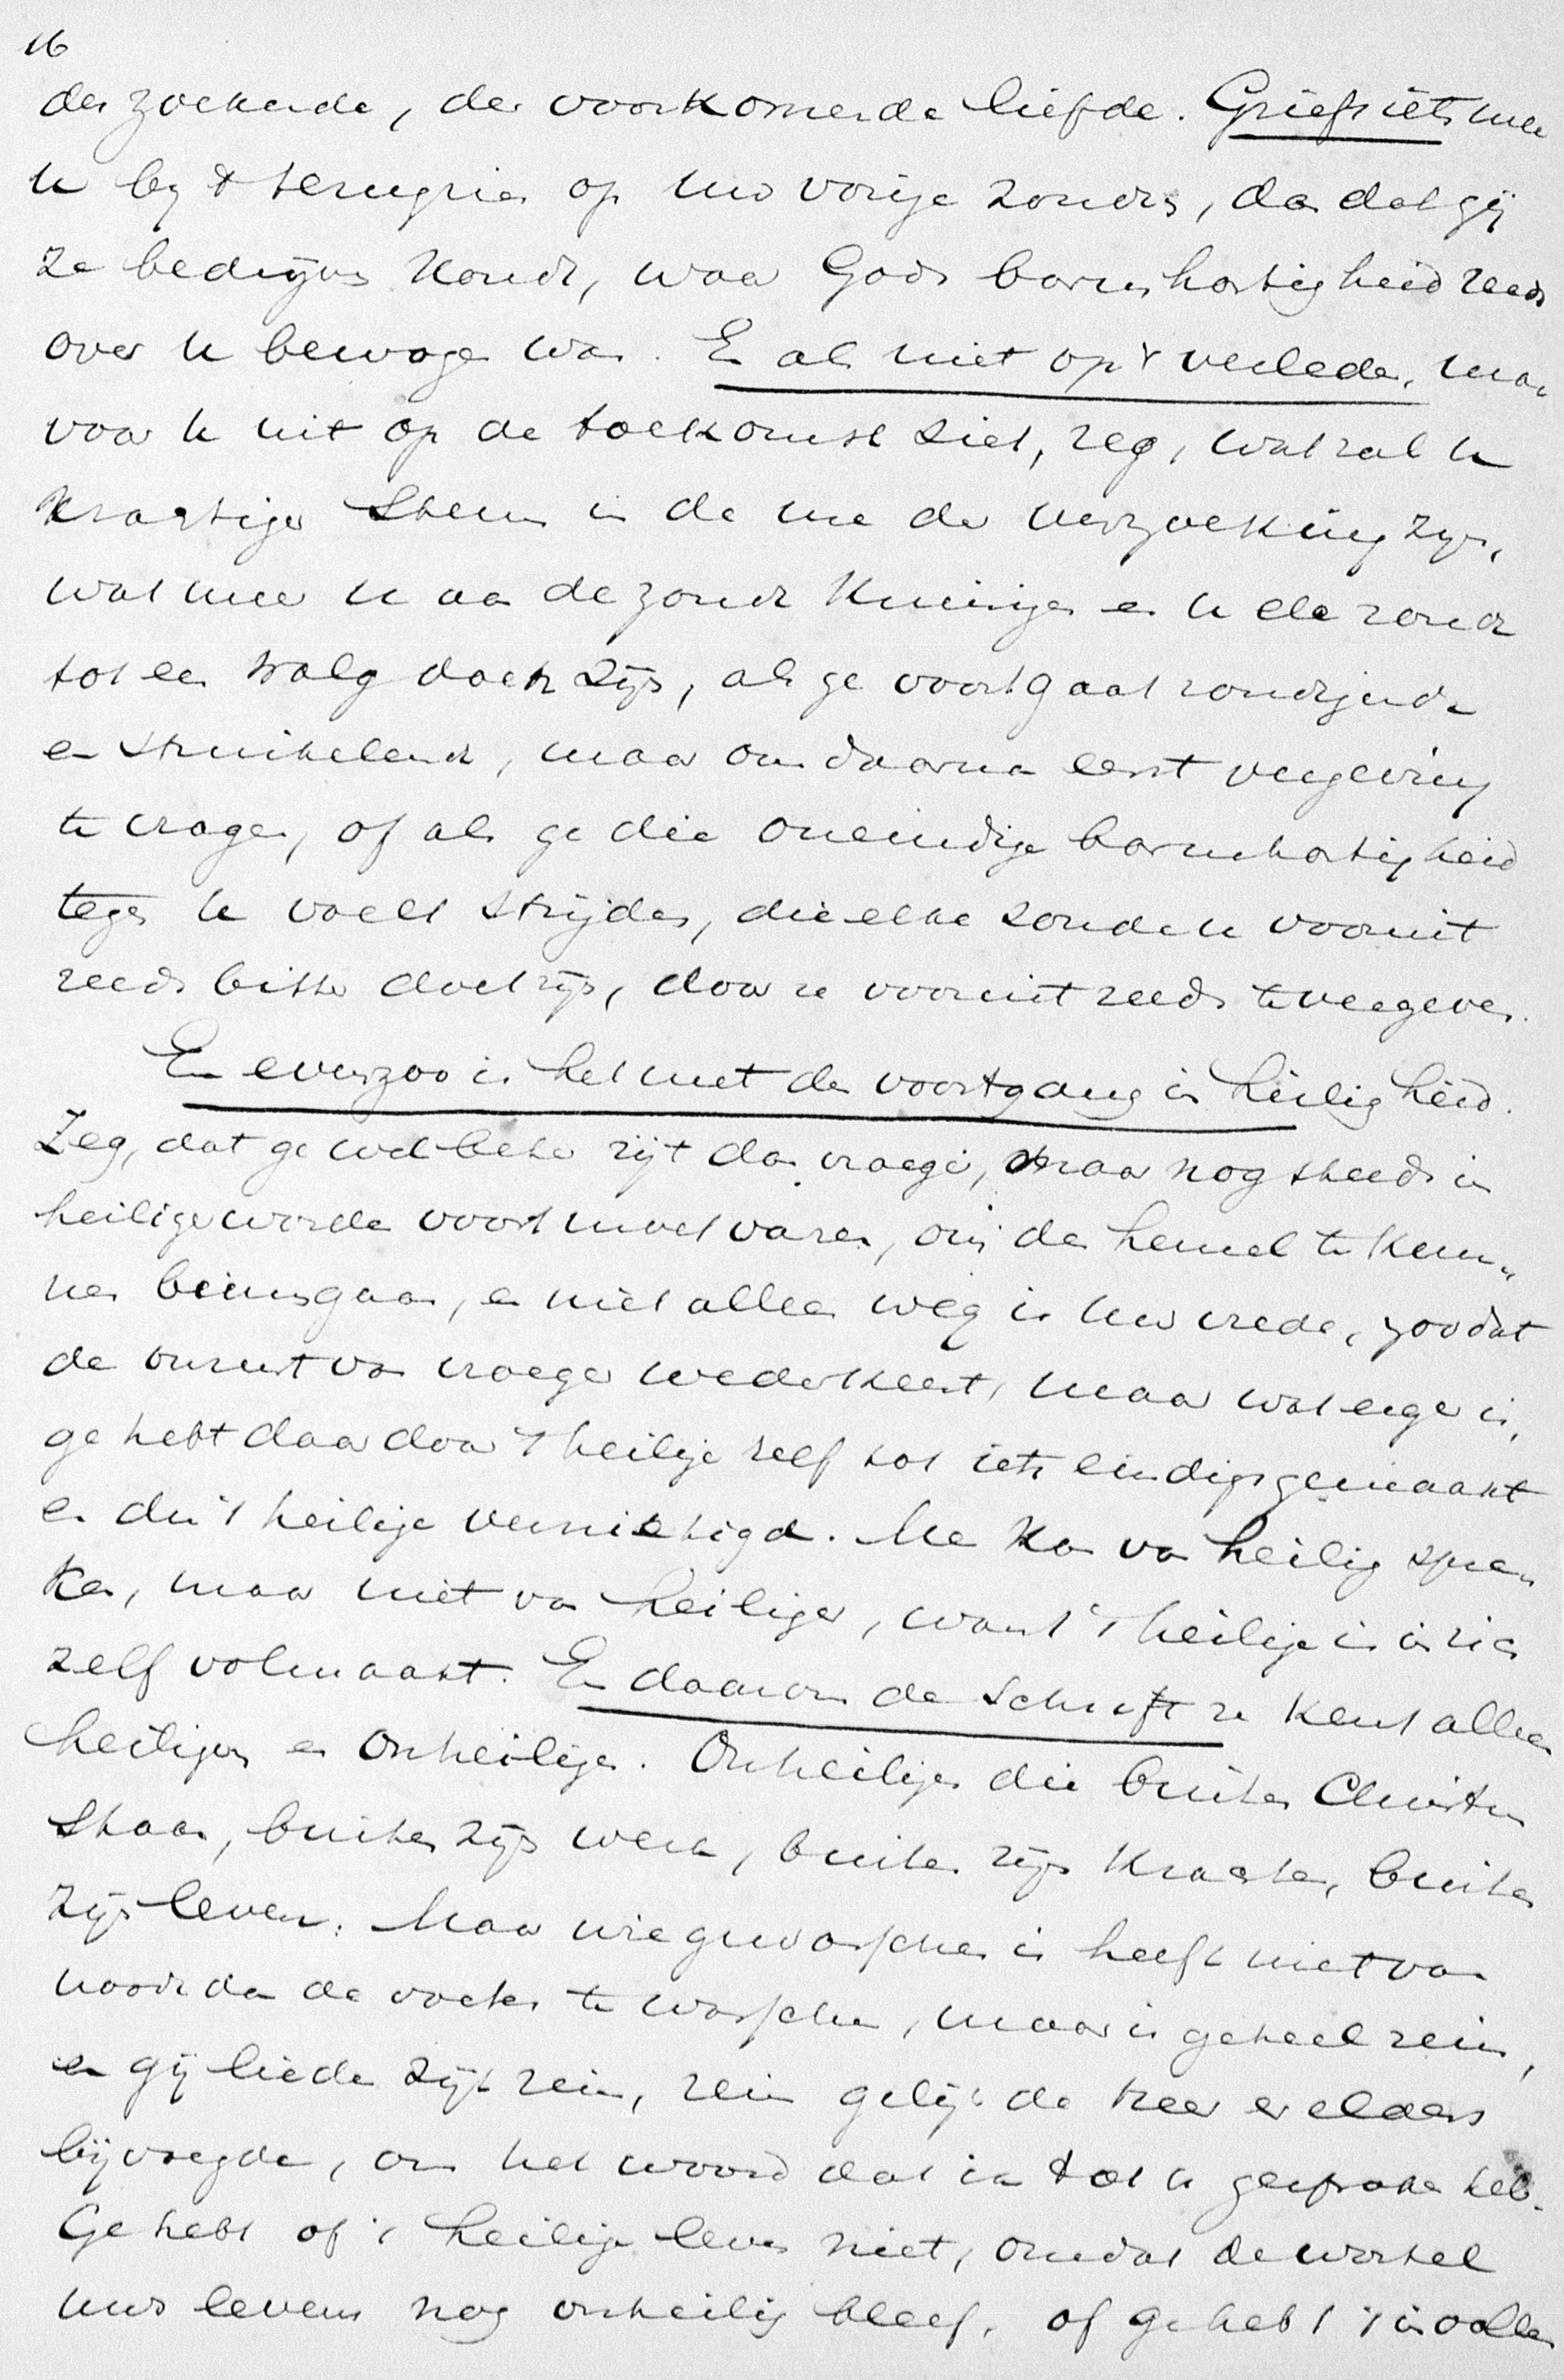 16
der zoekende, der voorkomende liefde. Grieft iets meer
u bij 't terugzien op uw vorige zonden, dan dat gij
ze bedrijven kondt, waar Gods barmhartigheid reeds
over u bewogen was. En als niet op 't verleden, maar
voor u uit op de toekomst ziet, zeg, wat zal u
krachtiger steun in de ure der verzoeking zijn,
wat meer u aan de zonde en u de zonde
tot een walg doen zijn, als ge voortgaat zondigende
en struikelend, maar om daarna eerst vergeving
te vragen, of als ge die oneindige barmhartigheid
tegen u voelt strijden, die elke zonde u vooruit
reeds bitter doet zijn, door ze vooruit reeds te vergeven.
En evenzoo is het met den voortgang in heiligheid.
Zeg, dat ge wel beter zijt dan vroeger, maar nog steeds in
heiliger worden voort moet varen, om den hemel te kun-
nen binnengaan, en niet alleen weg is uw vrede, zoodat
de onrust van vroeger wederkeert, maar wat erger is,
ge hebt daardoor 't heilige zelf tot iets eindigs gemaakt
en dus 't heilige vernietigd. Men kan van heilig spre-
ken, maar niet van heiliger, want 't heilige is in zich
zelf volmaakt. En daarom de Schrift ze kent alleen
heiligen en onheiligen. Onheiligen die buiten Christus
staan, buiten zijn werk, buiten zijn krachten, buiten
zijn leven. Maar wie gewasschen is heeft niet van
noode dan de voeten te wasschen, maar is geheel rein,
en gij lieden zijt rein, rein gelijk de Heer er elders
bijvoegde, om het woord dat ik tot u gesproken heb.
Ge hebt of 't heilige leven niet, omdat de wortel
uws levens nog onheilig bleef, of ge hebt 't in vollen